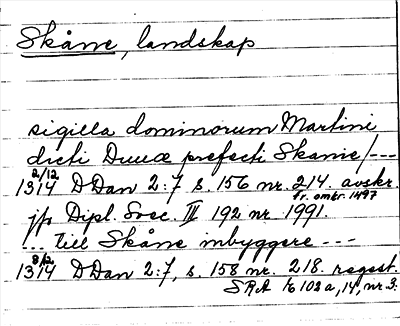 Skåne, landskap
sigilla dominorum Martini
dicti Duuæ prefecti Skanie/---
2/12
1314 DDan 2:7 s. 156 nr. 214. avskr.
fr. omkr. 1497
jfr Dipl. Svec. III 192 nr. 1991.
... till Skåne inbyggere ---
1314 DDan 2:7, s. 158 nr. 218. regest.
SRA 102a, 14, nr. 3.